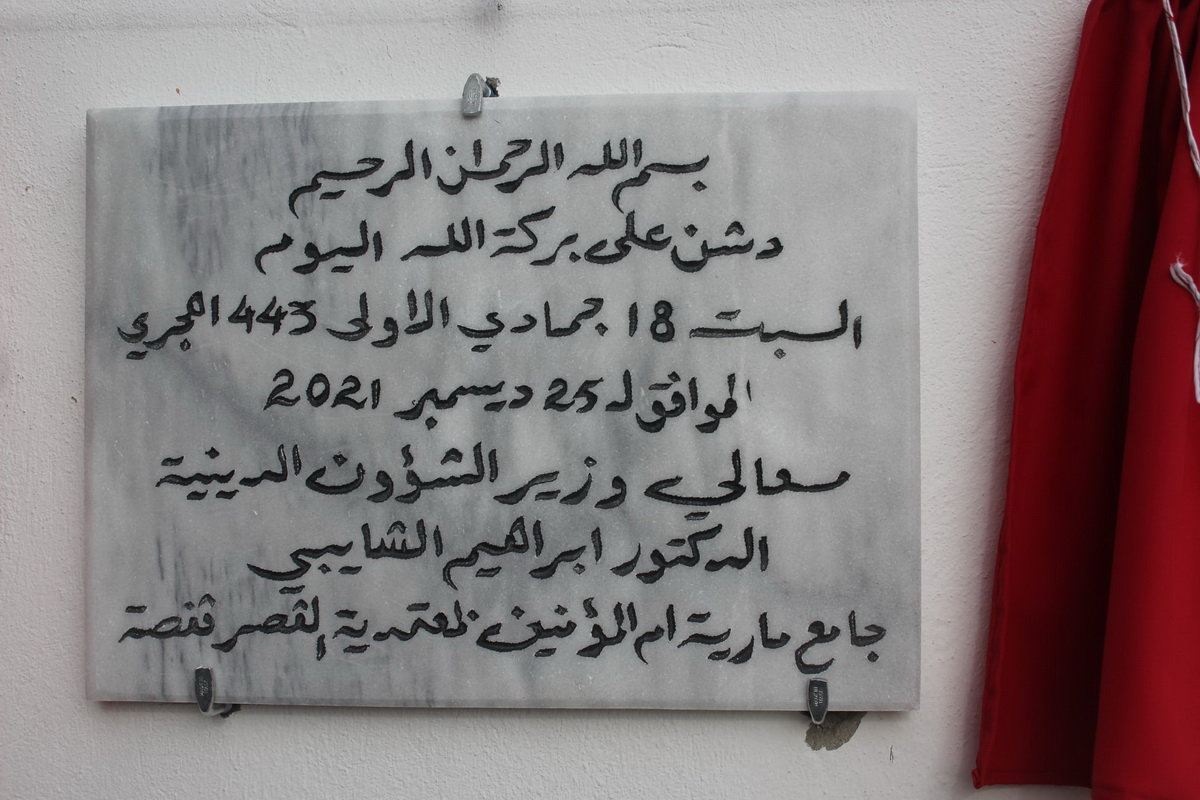 بسم الله الرحمان الرحيم
دشن على بركة الله اليوم
السبت 18 جمادي الاولى 1443 هجري
الموافق لـ 25 ديسمبر 2021
معالي وزير الشؤون الدينية
الدكتور ابراهيم الشايبي
جامع مارية ام المؤمنين بمعتمدية القصر قفصة